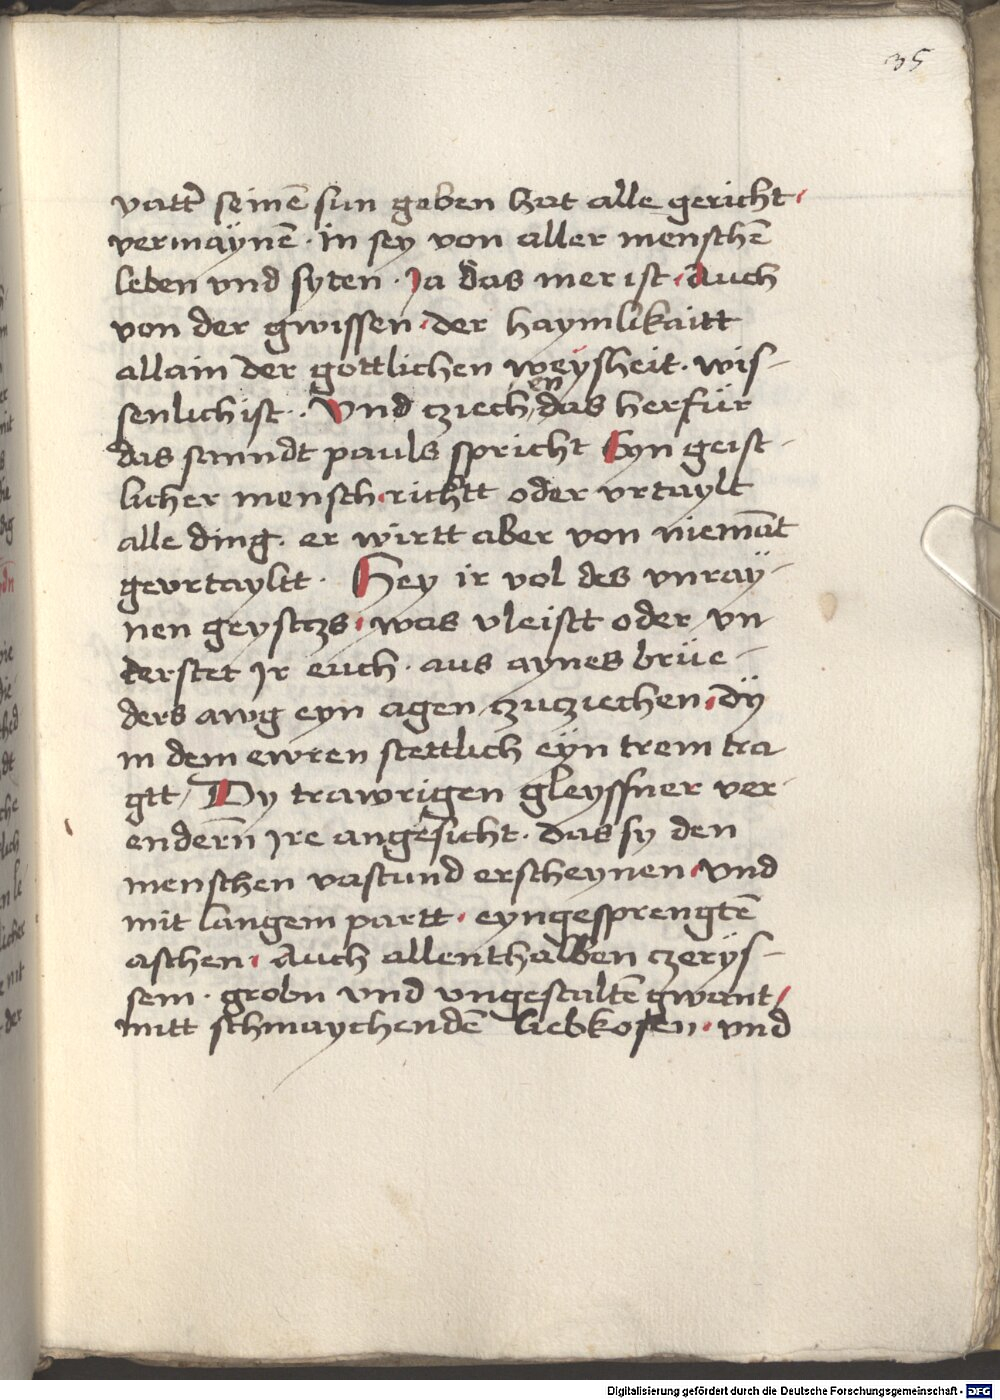 35
vatt̄ seinē sun geben hat alle gericht ·
vermäynē · in sey von aller menschē
leben vnd syten · Ja das mer ist · Auch
von der gwissen · der haymlikaitt
allain der gottlichen weysheit · wis-
senlich ist · Vnd cziechen das herfür
das sanndt pauls spricht Eyn geist-
licher mensch · richtt oder vrtaylt
alle ding · er wirtt aber von niemāt
gevrtayltt · Hey ir vol des vnray-
nen geystzs · was vleistt oder vn
terstet Jr euch · aus aynes brüe-
ders awg eyn agen zuziechen · dÿ
in dem ewren stettlich eÿn trem tra
gtt / Dy trawrigen gleyssner ver-
endern̄ Jre angesicht · das sy den
menschen vastund erscheynen · Vnd
mit langem partt · eyngesprengtē
aschen · Auch allenthalben czerÿs-
sem · grobn vnd vngestaltē gwant /
mitt schmaychendē liebkosen · vnd
Digitalisierung gefördert durch die Deutsche Forschungsgemeinschaft - DFG